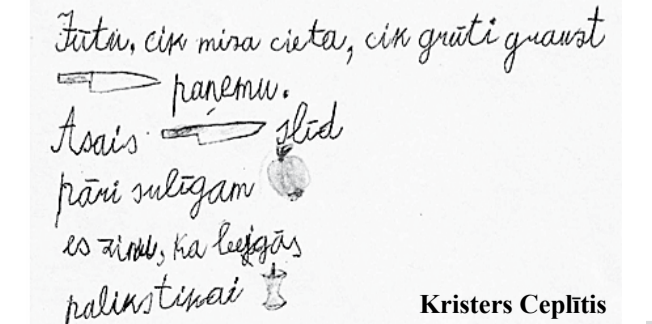 Jūtu, cik miza cieta, cik grūti grauzt
paņemu.
Asais slīd
pāri sulīgam
es zinu, ka beigās
paliks tikai
Kristers Ceplītis